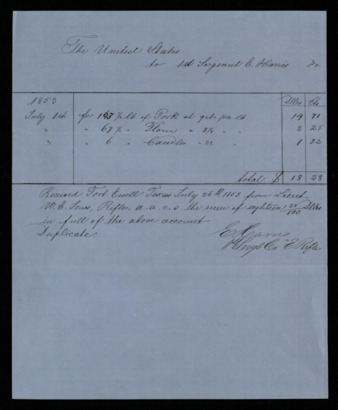 The United States
to 1st Sergeant E. Harris Dr
Dolls Cts
1853
July 26th for 157 ½ lb of Pork at 9 cts per lb 14
" " 67 ½ " Flour " 3 ⅓ " " 2 25
" " 6 " Candles " 22 " 1 32
total $ 18 28
Received Fort Ewell Texas July 26th 1853 from Lieut.
W. E. Jones, Rifles, a. a. c. s. the sum of eighteen 28/100 Dollars
in full of the above account
Duplicate
E Harris
1 Sergt Co "E" Rifles